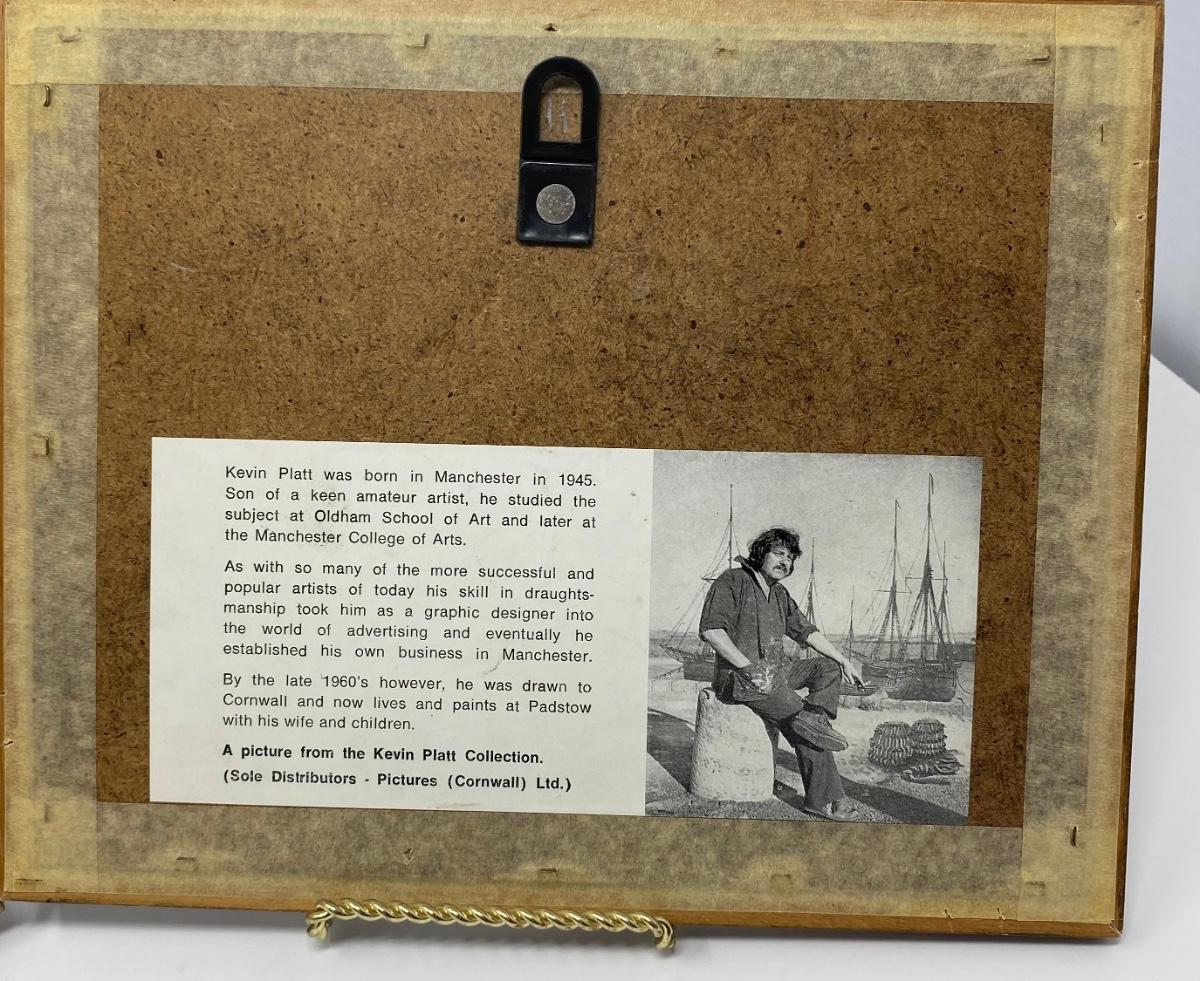 Kevin Platt was born in Manchester in 1945.
Son of a keen amateur artist, he studied the
subject at Oldham School of Art and later at
the Manchester College of Arts.
As with so many of the more successful and
popular artists of today his skill in draughts-
manship took him as a graphic designer into
the world of advertising and eventually he
established his own business in Manchester.
By the late 1960's however, he was drawn to
Cornwall and now lives and paints at Padstow
with his wife and children.
A picture from the Kevin Platt Collection.
(Sole Distributors - Pictures (Cornwall) Ltd.)